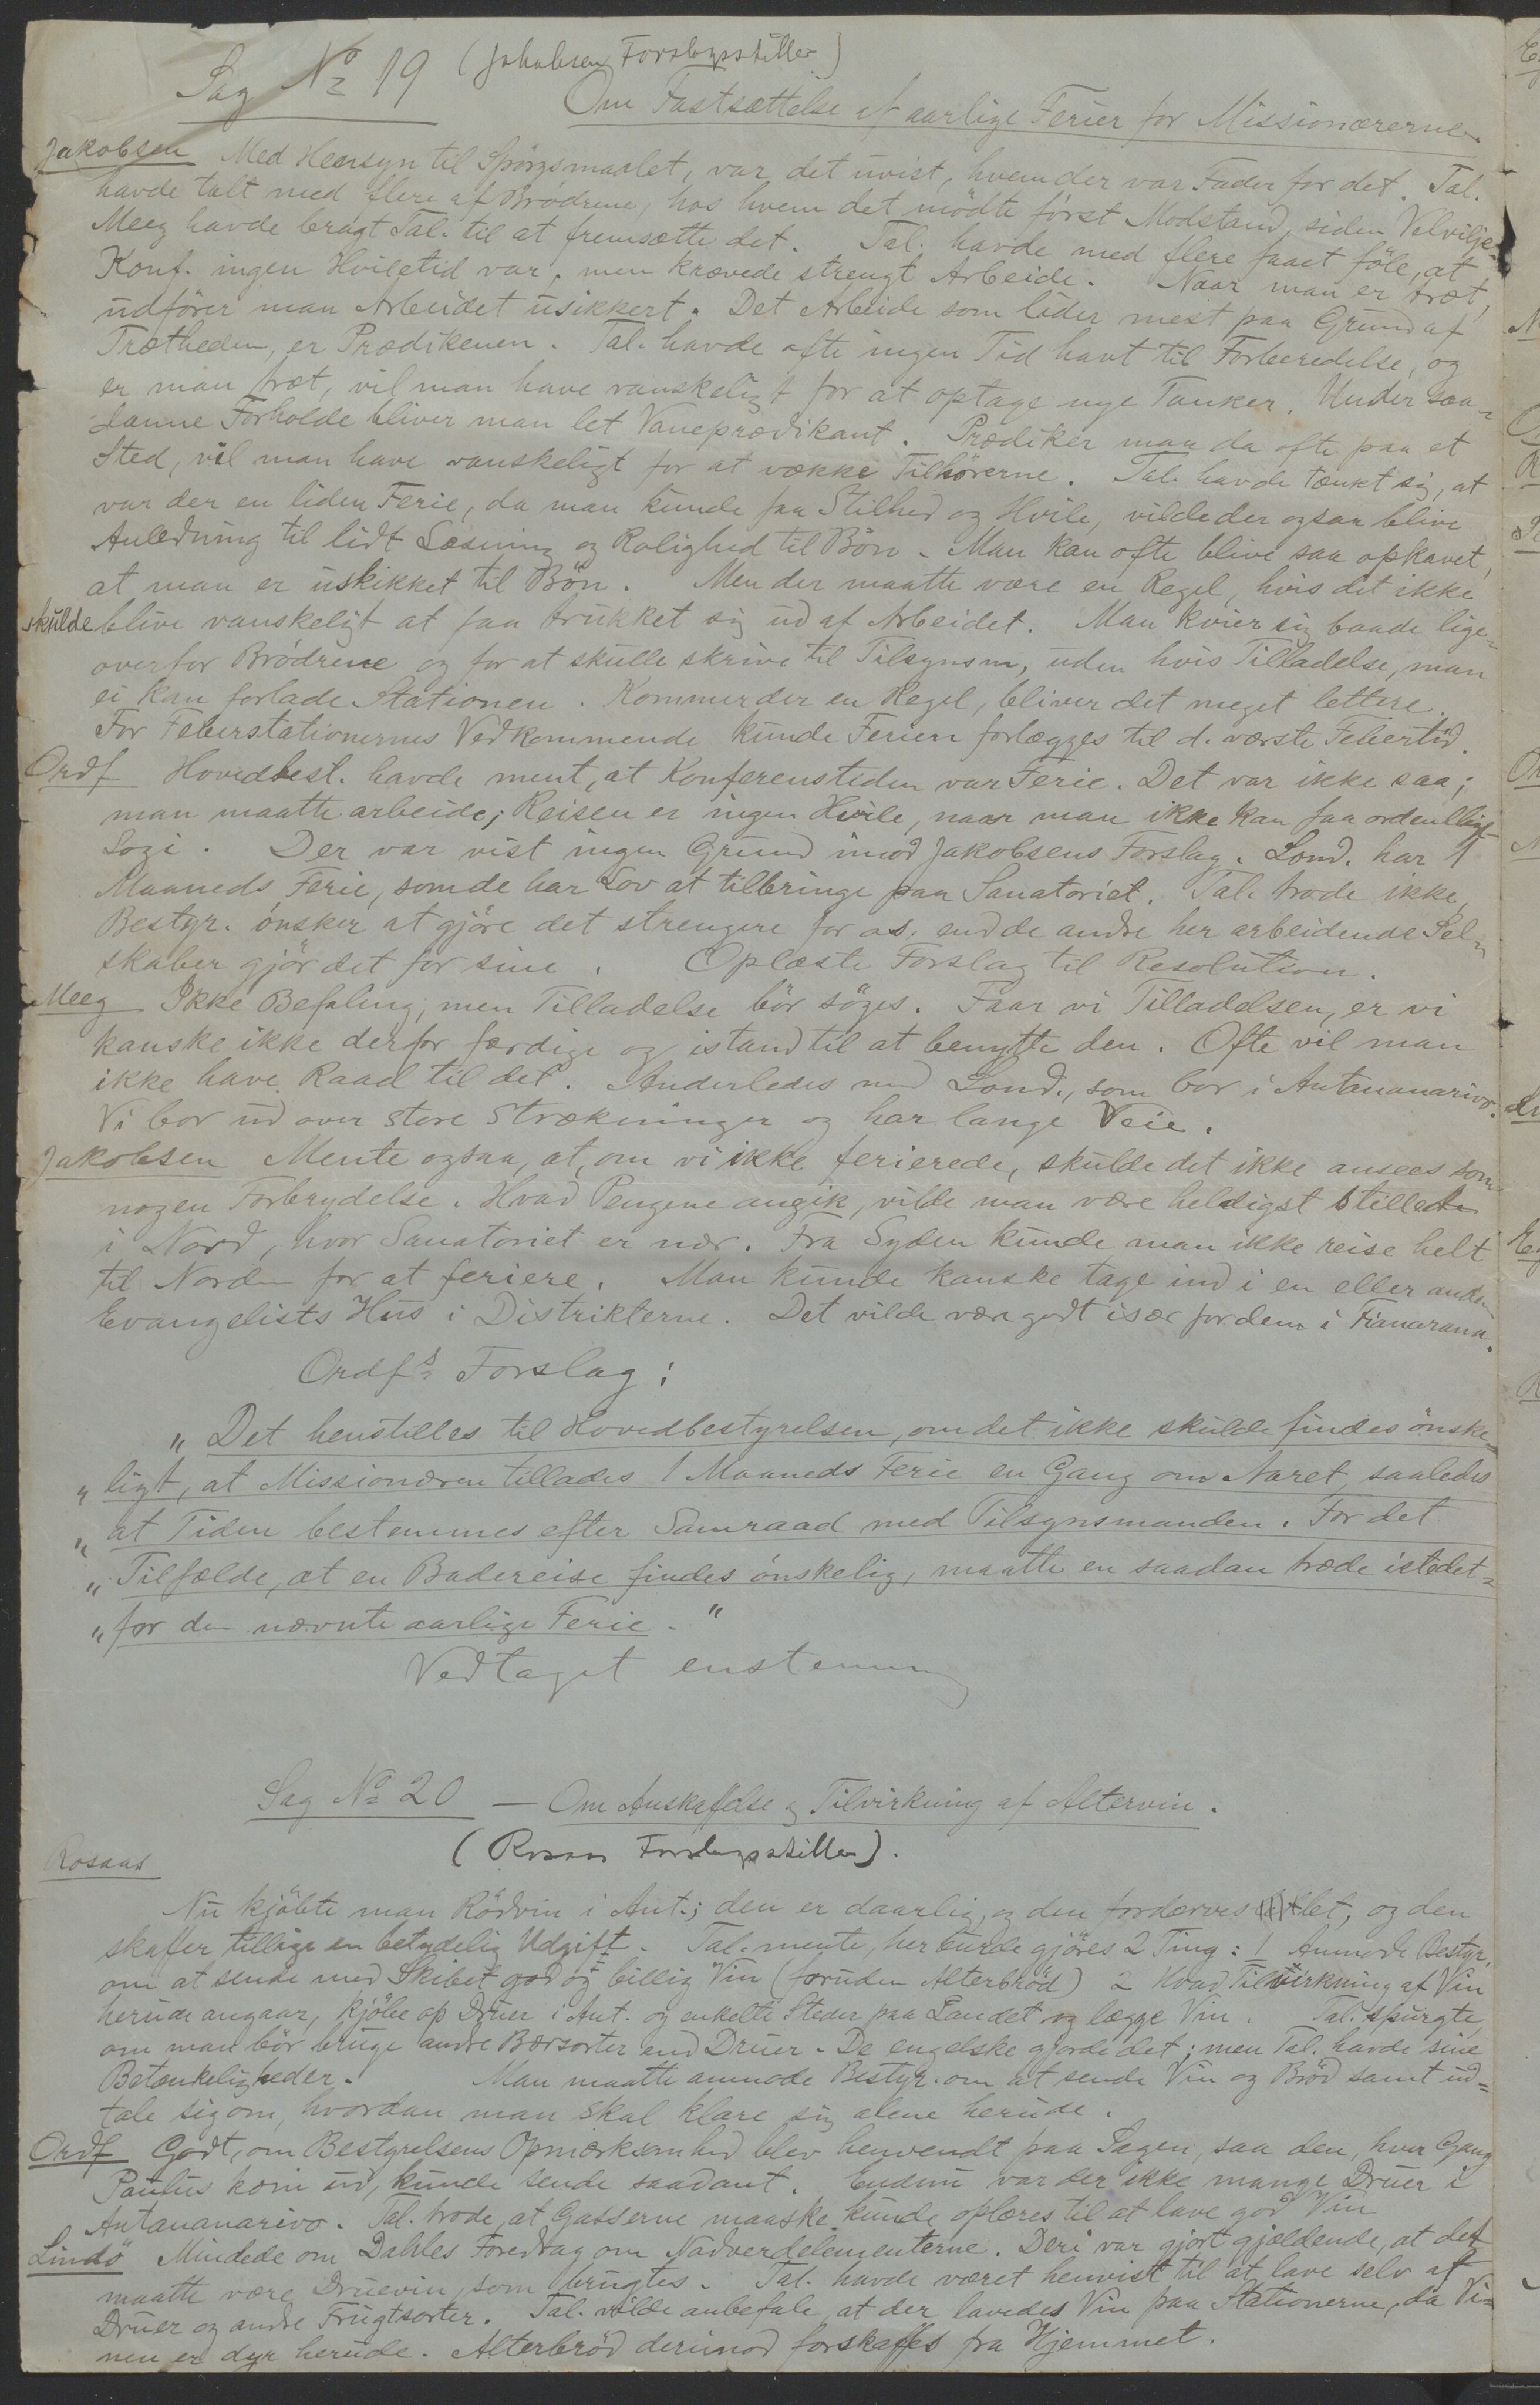 Sag No 19 (Jakobsen Forslagsstiller)
Om Fastsættelse af aarlige Ferier for Missionærerne
Jakobsen Med Hensyn til Spörgsmaalet, var det uvist, hvem der var Fader for det. Tal.
havde talt med flere af Brödrene, hos hvem det mödte först Modstand, siden Velvilje.
Meeg havde bragt Tal. til at fremsætte det. Tal. havde med flere faaet föle, at
Konf. ingen Hviletid var, men krævede strengt Arbeide. Naar man er træt,
udförer man Arbeidet usikkert. Det Arbeide som lider mest paa Grund af
Trætheden, er Prædikenen. Tal. havde ofte ingen Tid havt til Forberedelse, og
er man træt, vil man have vanskeligt for at optage nye Tanker. Under saa-
danne Forholde bliver man let Vaneprædikant. Prædiker man da ofte paa et
Sted, vil man have vanskeligt for at vække Tilhörerne. Tal. havde tænkt sig, at
var der en liden Ferie, da man kunde faa Stilhed og Hvile, vilde der ogsaa blive
Anledning til lidt Læsning og Rolighed til Bön. Man kan ofte blive saa opkavet,
at man er uskikket til Bön. Men der maatte være en Regel, hvis det ikke
skulde blive vanskeligt at faa trukket sig ud af Arbeidet. Man kvier sig baade lige-
overfor Brödrene og for at skulle skrive til Tilsynsm, uden hvis Tilladelse, man
ei kan forlade Stationen. Kommer der en Regel, bliver det meget lettere.
For Feberstationernes Vedkommende kunde Ferien forlægges til d. værste Febertid.
Ordf Hovedbest. havde ment, at Konferenstiden var Ferie. Det var ikke saa;
man maatte arbeide; Reisen er ingen Hvile, naar man ikke kan faa ordentligt
Logi. Der var vist ingen Grund imod Jakobsens Forslag. Lond. har 1
Maaneds Ferie, som de har Lov at tilbringe paa Sanatoriet. Tal. trode ikke,
Bestyr. önsker at gjöre det strengere for os, end de andre her arbeidende Sel-
skaber gjör det for sine. Oplæste Forslag til Resolution.
Meeg Ikke Befaling, men Tilladelse bör söges. Faar vi Tilladelsen, er vi
kanske ikke derfor færdige og istand til at benytte den. Ofte vil man
ikke have Raad til det. Anderledes med Lond., som bor i Antananarivo.
Vi bor ud over store Strækninger og har lange Veie.
Jakobsen Mente ogsaa, at, om vi ikke ferierede, skulde det ikke ansees som
nogen Forbrydelse. Hvad Pengene angik, vilde man være heldigst stillet
i Nord, hvor Sanatoriet er nær. Fra Syden kunde man ikke reise helt
til Norden for at feriere. Man kunde kanske tage ind i en eller anden
Evangelists Hus i Distrikterne. Det vilde være godt især for dem i Fianarana.
Ordfs Forslag:
"Det henstilles til Hovedbestyrelsen, om det ikke skulde findes önske-
"ligt, at Missionæren tillades 1 Maaneds Ferie en Gang om Aaret, saaledes
"at Tiden bestemmes efter Samraad med Tilsynsmanden. For det
"Tilfælde, at en Badereise findes önskelig, maatte en saadan træde istedet-
"for den nævnte aarlige Ferie."
Vedtaget enstemmig
Sag No 20 — Om Anskaffelse og Tilvirkning af Altervin.
(Rosaas Forslagsstiller).
Rosaas
Nu kjöbte man Rödvin i Ant.; den er daarlig, og den fordærves let, og den
skaffer tillige en betydelig Udgift. Tal. mente, her burde gjöres 2 Ting: 1 Anmode Bestyr.
om at sende med Skibet god og billig Vin (foruden Alterbröd) 2 Hvad Tilvirkning af Vin
herude angaar, kjöbe op Druer i Ant. og enkelte Steder paa Landet og lægge Vin. Tal. spurgte,
om man bör bruge andre Bærsorter end Druer. De engelske gjorde det; men Tal. havde sine
Betænkeligheder. Man maatte anmode Bestyr. om at sende Vin og Bröd samt ud-
tale sig om, hvordan man skal klare sig alene herude.
Ordf Godt, om Bestyrelsens Opmærksomhed blev henvendt paa Sagen, saa den, hver Gang
Paulus kom ud, kunde sende saadant. Endnu var der ikke mange Druer i
Antananarivo. Tal. trode, at Gasserne maaske kunde oplæres til at lave god Vin
Lindö Mindede om Dahles Foredrag om Nadverdelementerne. Deri var gjort gjældende, at det
maatte være Druevin, som brugtes. Tal. havde været henvist til at lave selv af
Druer og andre Frugtsorter. Tal. vilde anbefale, at der lavedes Vin paa Stationerne, da Vi-
nen er dyr herude. Alterbröd derimod forskaffes fra Hjemmet.